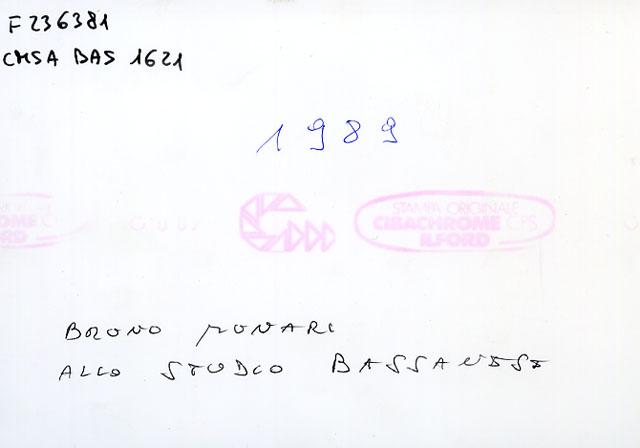 F 236381
CMSA BAS 1621
1989
STAMPA ORIGINALE
CIBACHROME CPS
ILFORD
BRUNO MUNARI
ALLO STUDIO BASSANESE